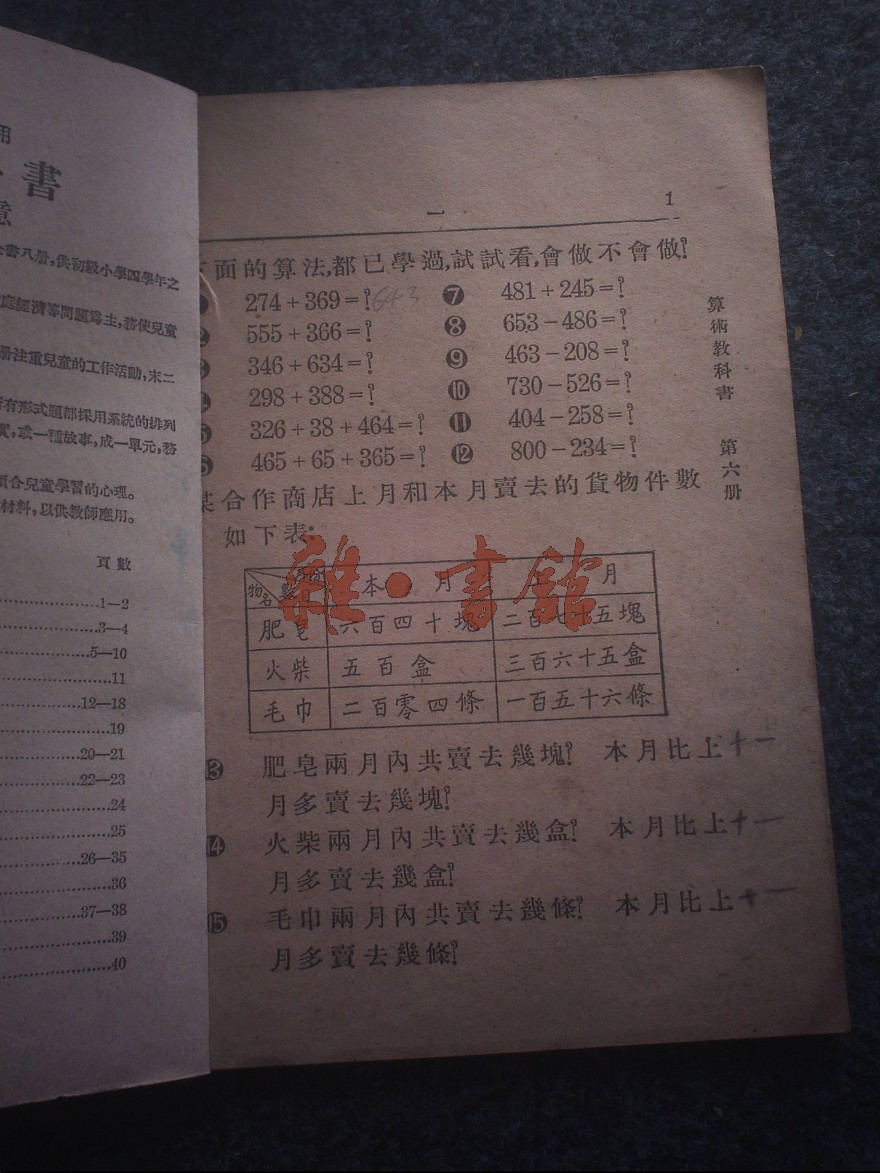 用
書
意
全書八册,供初級小學四學年之
庭經濟等問題爲主,務使兒童
册注重兒童的工作活動,末二
所有形式題都採用系統的排列
實,或一種故事,成一單元,務
頁合兒童學習的心理。
材料,以供教師應用。
頁數
1—2
3—4
5—10
11
12—18
19
20—21
22—23
24
25
26—35
36
37—38
39
40
一 1
下面的算法,都已學過,試試看,會做不會做?
274+369=? 643 ❼ 481+245=?
555+366=? ❽ 653-486=?
346+634=? ❾ 463-208=?
298+388=? ❿ 730-526=?
326+38+464=? ⓫ 404-258=?
465+65+365=? ⓬ 800-234=?
某合作商店上月和本月賣去的貨物件數
如下表:
物名 數 本月 上月
肥皂 六百四十塊 二百七十五塊
火柴 五百盒 三百六十五盒
毛巾 二百零四條 一百五十六條
雜·書館
⓭ 肥皂兩月內共賣去幾塊? 本月比上十一
月多賣去幾塊?
⓮ 火柴兩月內共賣去幾盒? 本月比上十一
月多賣去幾盒?
⓯ 毛巾兩月內共賣去幾條? 本月比上十一
月多賣去幾條?
算術教科書 第六册